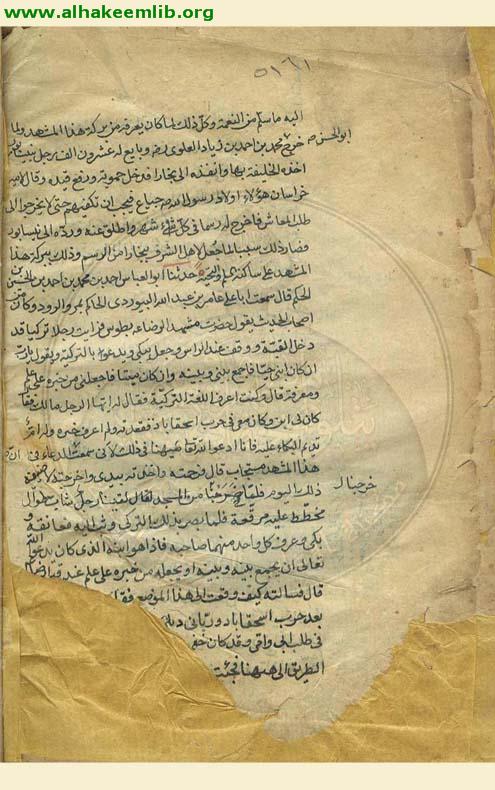 www.alhakeemlib.org
٥١٦١
اليه ما سلم من النعمة وكل ذلك لما كان يعرفه من بركة هذا المشهد ولما
ابو الحسن
خرج محمد بن احمد بن زياد العلوي رضه وبايع له عشرون الف رجل بنيسابور
اخذه الخليفة بها وانفذه الى بخارا فدخل حمويه ورفع قيده وقال لامير
خراسان هؤلاء اولاد رسول الله وهم جياع فيجب ان تكفيهم حتى لا يخرجوا الى
طلب المعاش فاخرج له رسما في كل شهر واطلق عنه ورده الى نيسابور
فصار ذلك سببا لما جعل لاهل الشرف ببخارا من الرسم وذلك ببركة هذا
المشهد على ساكنه السلم والتحية حدثنا ابو العباس احمد بن محمد بن احمد بن الحسين
الحكم قال سمعت ابا علي عامر بن عبد الله البيوردي الحاكم بمرو الرود وكان من
اصحاب الحديث يقول حضرت مشهد الرضا ع بطوس فرايت رجلا تركيا قد
دخل القبة ووقف عند الراس وجعل يبكي ويدعو بالتركية ويقول يا رب
ان كان ابني حيا فاجمع بيني وبينه وان كان ميتا فاجعلني من خبره على علم
ومعرفة قال وكنت اعرف اللغة التركية فقلت له ايها الرجل مالك فقا
كان لي ابن وكان معي في حرب اسحقاباد ففقدته ولا اعرف خبره وله ام
تديم البكاء عليه فانا ادعو الله تعا ههنا في ذلك لاني سمعت ان الدعاء في
هذا المشهد مستجاب قال فرحمته واخذته بيدي واخرجته لاضيفه
ذلك اليوم فلما خرجنا من المسجد لقينا رجل شاب طوال
خرجنا
مخطط عليه مرقعة فلما بصر بذلك التركي وثب اليه فعانقه و
بكى وعرف كل واحد منهما صاحبه فاذا هو ابنه الذي كان يدعو الله
تعالى ان يجمع بينه وبينه او يجعله من خبره على علم عند قبر الرضا
قال فسالته كيف وقعت الى هذا الموضع فقا
بعد حرب اسحقاباد ورباني ديلمي
في طلب ابي وامي وقد كان خفي
الطريق الى ههنا فجئت